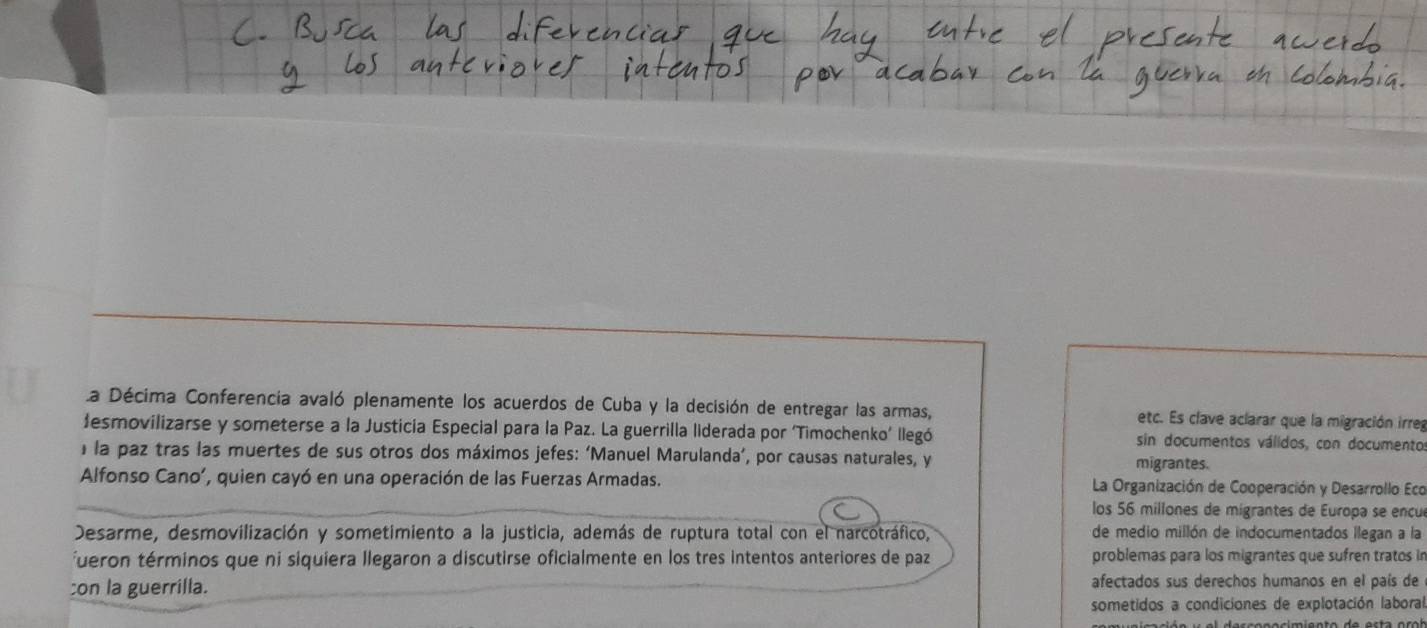 C. Busca las diferencias que hay entre el presente acuerdo
y los anteriores intentos por acabar con la guerra en Colombia.
a Décima Conferencia avaló plenamente los acuerdos de Cuba y la decisión de entregar las armas,
desmovilizarse y someterse a la Justicia Especial para la Paz. La guerrilla liderada por ‘Timochenko’ llegó
la paz tras las muertes de sus otros dos máximos jefes: ‘Manuel Marulanda’, por causas naturales, y
Alfonso Cano’, quien cayó en una operación de las Fuerzas Armadas.
C
Desarme, desmovilización y sometimiento a la justicia, además de ruptura total con el narcotráfico,
fueron términos que ni siquiera llegaron a discutirse oficialmente en los tres intentos anteriores de paz
con la guerrilla.
etc. Es clave aclarar que la migración irreg
sin documentos válidos, con documentos
migrantes.
La Organización de Cooperación y Desarrollo Eco
los 56 millones de migrantes de Europa se encue
de medio millón de indocumentados llegan a la
problemas para los migrantes que sufren tratos in
afectados sus derechos humanos en el país de
sometidos a condiciones de explotación laboral